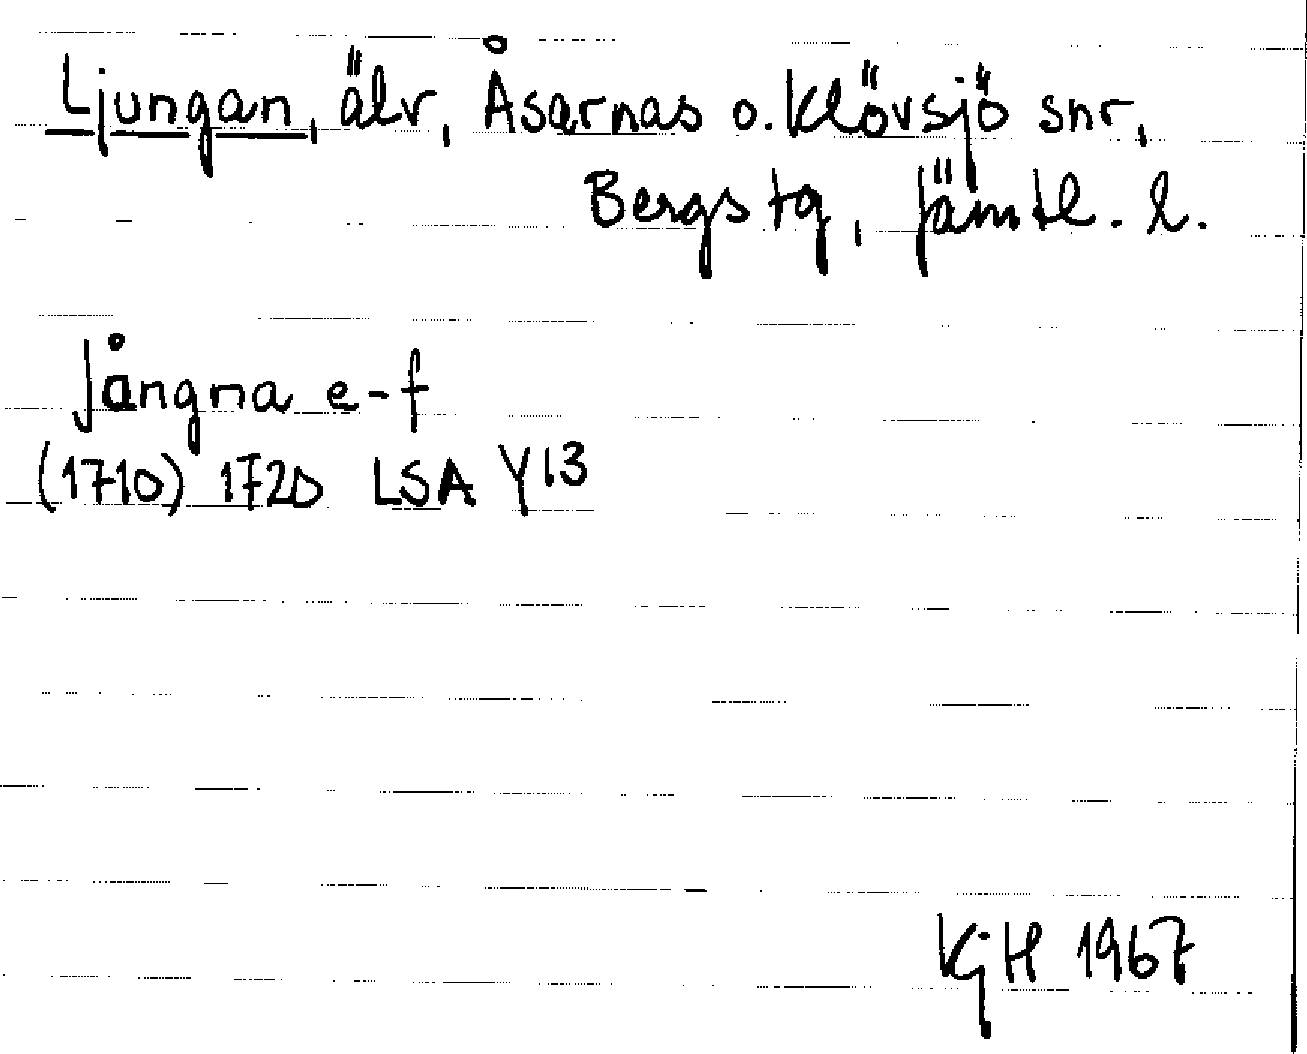 Ljungan, älv, Åsarnas o. Klövsjö snr,
Bergs tg, Jämtl. l.
Jångna e-f
(1710) 1720 LSA Y13
KjH 1967